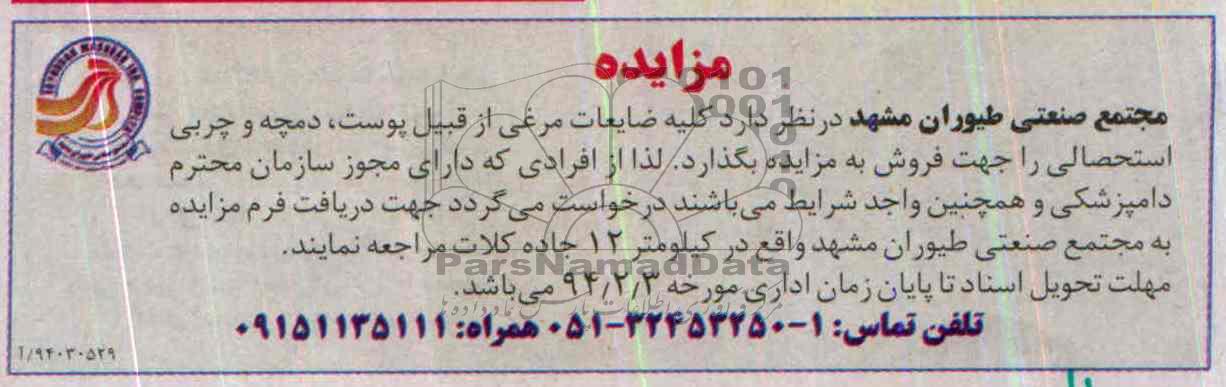 مزایده
مجتمع صنعتی طیوران مشهد در نظر دارد کلیه ضایعات مرغی از قبیل پوست، دمچه و چربی
استحصالی را جهت فروش به مزایده بگذارد. لذا از افرادی که دارای مجوز سازمان محترم
دامپزشکی و همچنین واجد شرایط می‌باشند درخواست می‌گردد جهت دریافت فرم مزایده
به مجتمع صنعتی طیوران مشهد واقع در کیلومتر ۱۲ جاده کلات مراجعه نمایند.
ParsNamadData
مهلت تحویل اسناد تا پایان زمان اداری مورخه ۹۴/۲/۳ می‌باشد.
تلفن تماس: ۱-۳۲۴۵۳۲۵۰-۰۵۱ همراه: ۰۹۱۵۱۱۳۵۱۱۱
۹۴۰۳۰۵۲۹/آ